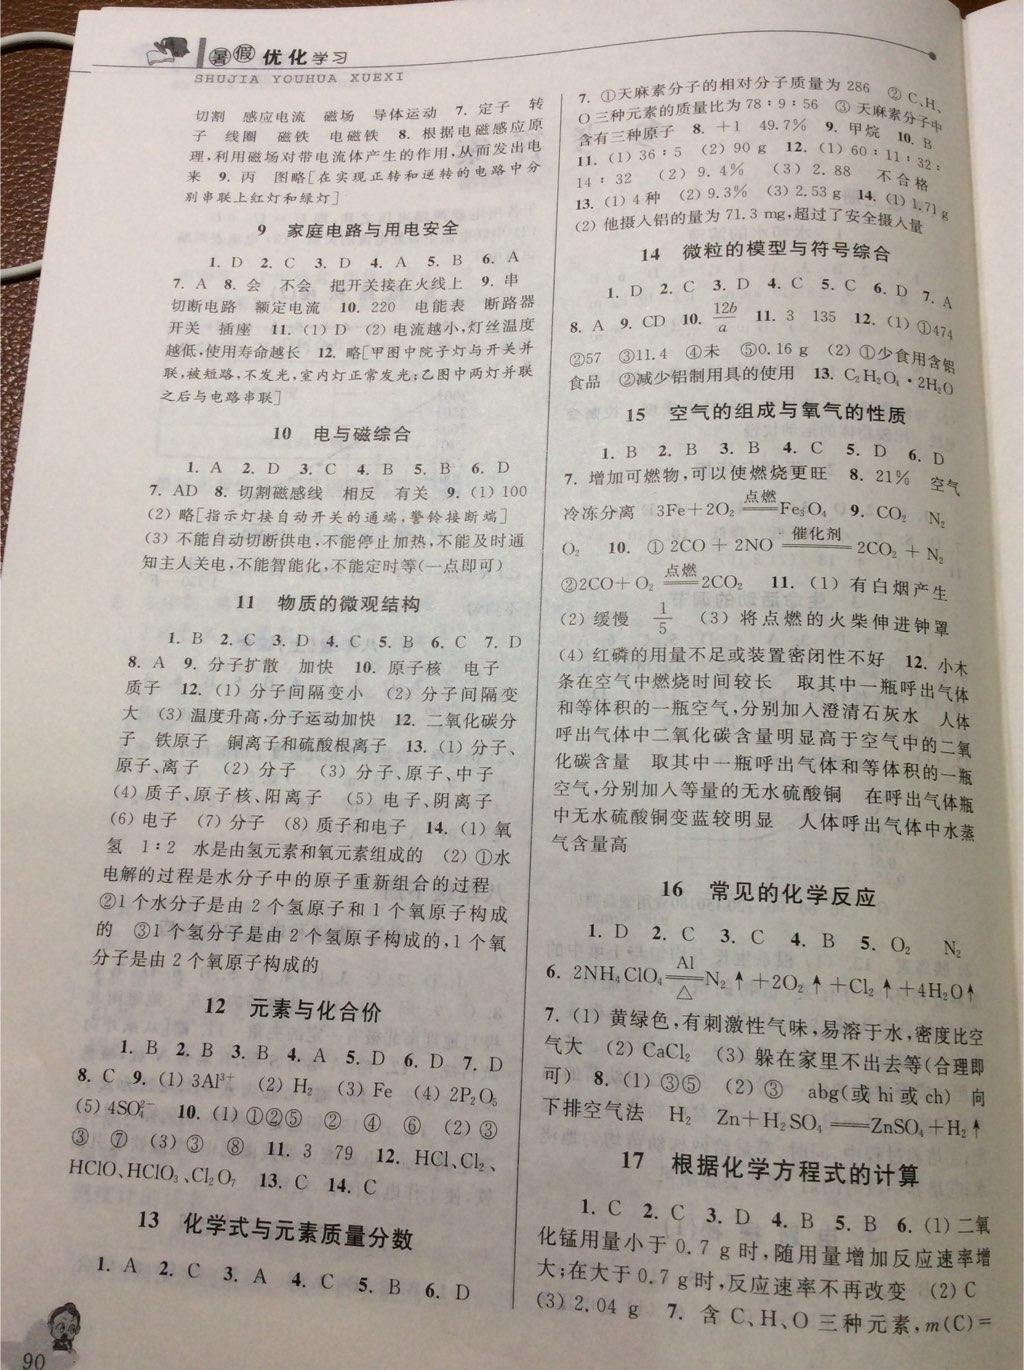 暑假 优化学习
SHUJIA YOUHUA XUEXI
切割 感应电流 磁场 导体运动 7. 定子 转
子 线圈 磁铁 电磁铁 8. 根据电磁感应原
理,利用磁场对带电流体产生的作用,从而发出电
来 9. 丙 图略[在实现正转和逆转的电路中分
别串联上红灯和绿灯]
9 家庭电路与用电安全
1. D 2. C 3. D 4. A 5. B 6. A
7. A 8. 会 不会 把开关接在火线上 9. 串
切断电路 额定电流 10. 220 电能表 断路器
开关 插座 11. (1) D (2) 电流越小,灯丝温度
越低,使用寿命越长 12. 略[甲图中院子灯与开关并
联,被短路,不发光,室内灯正常发光;乙图中两灯并联
之后与电路串联]
10 电与磁综合
1. A 2. D 3. C 4. B 5. B 6. D
7. AD 8. 切割磁感线 相反 有关 9. (1) 100
(2) 略[指示灯接自动开关的通端,警铃接断端]
(3) 不能自动切断供电,不能停止加热,不能及时通
知主人关电,不能智能化,不能定时等(一点即可)
11 物质的微观结构
1. B 2. C 3. D 4. C 5. B 6. C 7. D
8. A 9. 分子扩散 加快 10. 原子核 电子
质子 12. (1) 分子间隔变小 (2) 分子间隔变
大 (3) 温度升高,分子运动加快 12. 二氧化碳分
子 铁原子 铜离子和硫酸根离子 13. (1) 分子、
原子、离子 (2) 分子 (3) 分子、原子、中子
(4) 质子、原子核、阳离子 (5) 电子、阴离子
(6) 电子 (7) 分子 (8) 质子和电子 14. (1) 氧
氢 1∶2 水是由氢元素和氧元素组成的 (2) ①水
电解的过程是水分子中的原子重新组合的过程
②1个水分子是由2个氢原子和1个氧原子构成
的 ③1个氢分子是由2个氢原子构成的,1个氧
分子是由2个氧原子构成的
12 元素与化合价
1. B 2. B 3. B 4. A 5. D 6. D 7. D
8. C 9. (1) 3Al³⁺ (2) H₂ (3) Fe (4) 2P₂O₅
(5) 4SO₄²⁻ 10. (1) ①②⑤ ② ④ ⑥ (2) ③
③ ⑦ (3) ③ ⑧ 11. 3 79 12. HCl、Cl₂、
HClO、HClO₃、Cl₂O₇ 13. C 14. C
13 化学式与元素质量分数
1. A 2. C 3. A 4. C 5. B 6. D
90
7. ①天麻素分子的相对分子质量为 286 ② C、H、
O三种元素的质量比为 78∶9∶56 ③ 天麻素分子中
含有三种原子 8. +1 49.7% 9. 甲烷 10. B
11. (1) 36∶5 (2) 90 g 12. (1) 60∶11∶32∶
14∶32 (2) 9.4% (3) 2.88 不合格
13. (1) 4种 (2) 9.3% (3) 2.53 g 14. (1) 1.71 g
(2) 他摄入铝的量为 71.3 mg,超过了安全摄入量
14 微粒的模型与符号综合
1. D 2. C 3. D 4. C 5. C 6. D 7. A
8. A 9. CD 10. 12b/a 11. 3 135 12. (1) ①474
②57 ③11.4 ④未 ⑤0.16 g (2) ①少食用含铝
食品 ②减少铝制用具的使用 13. C₂H₂O₄·2H₂O
15 空气的组成与氧气的性质
1. B 2. B 3. B 4. C 5. D 6. D
7. 增加可燃物,可以使燃烧更旺 8. 21% 空气
冷冻分离 3Fe+2O₂ 点燃══ Fe₃O₄ 9. CO₂ N₂
O₂ 10. ①2CO + 2NO 催化剂══ 2CO₂ + N₂
②2CO+O₂ 点燃══ 2CO₂ 11. (1) 有白烟产生
(2) 缓慢 1/5 (3) 将点燃的火柴伸进钟罩
(4) 红磷的用量不足或装置密闭性不好 12. 小木
条在空气中燃烧时间较长 取其中一瓶呼出气体
和等体积的一瓶空气,分别加入澄清石灰水 人体
呼出气体中二氧化碳含量明显高于空气中的二氧
化碳含量 取其中一瓶呼出气体和等体积的一瓶
空气,分别加入等量的无水硫酸铜 在呼出气体瓶
中无水硫酸铜变蓝较明显 人体呼出气体中水蒸
气含量高
16 常见的化学反应
1. D 2. C 3. C 4. B 5. O₂ N₂
6. 2NH₄ClO₄ Al══△ N₂↑+2O₂↑+Cl₂↑+4H₂O↑
7. (1) 黄绿色,有刺激性气味,易溶于水,密度比空
气大 (2) CaCl₂ (3) 躲在家里不出去等(合理即
可) 8. (1) ③⑤ (2) ③ abg(或 hi 或 ch) 向
下排空气法 H₂ Zn+H₂SO₄══ZnSO₄+H₂↑
17 根据化学方程式的计算
1. C 2. C 3. D 4. B 5. B 6. (1) 二氧
化锰用量小于 0.7 g 时,随用量增加反应速率增
大;在大于 0.7 g 时,反应速率不再改变 (2) C
(3) 2.04 g 7. 含 C、H、O 三种元素,m(C)=